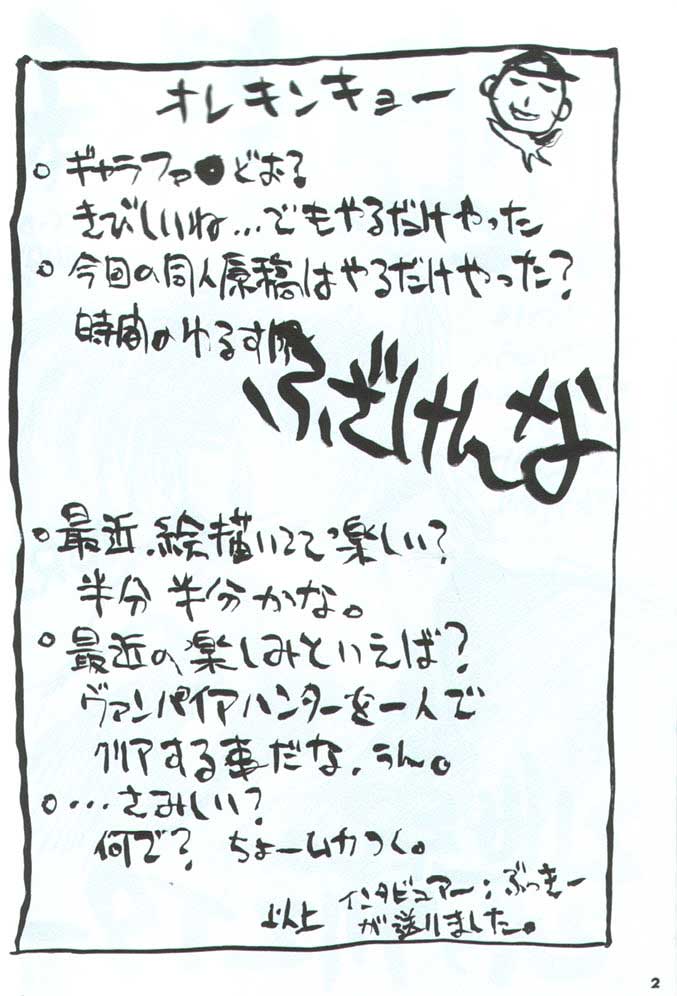 オレキンキョー
○ギャラファ●どお?
きびしいね…でもやるだけやった
○今回の同人原稿はやるだけやった?
時間のゆるす限
ふざけんな
○最近、絵描いてて楽しい?
半分半分かな。
○最近の、楽しみといえば?
ヴァンパイアハンターを一人で
クリアする事だな、うん。
○…さみしい?
何で? ちょームカつく。
以上 インタビュアー:ぶっきー
が送りました。
2